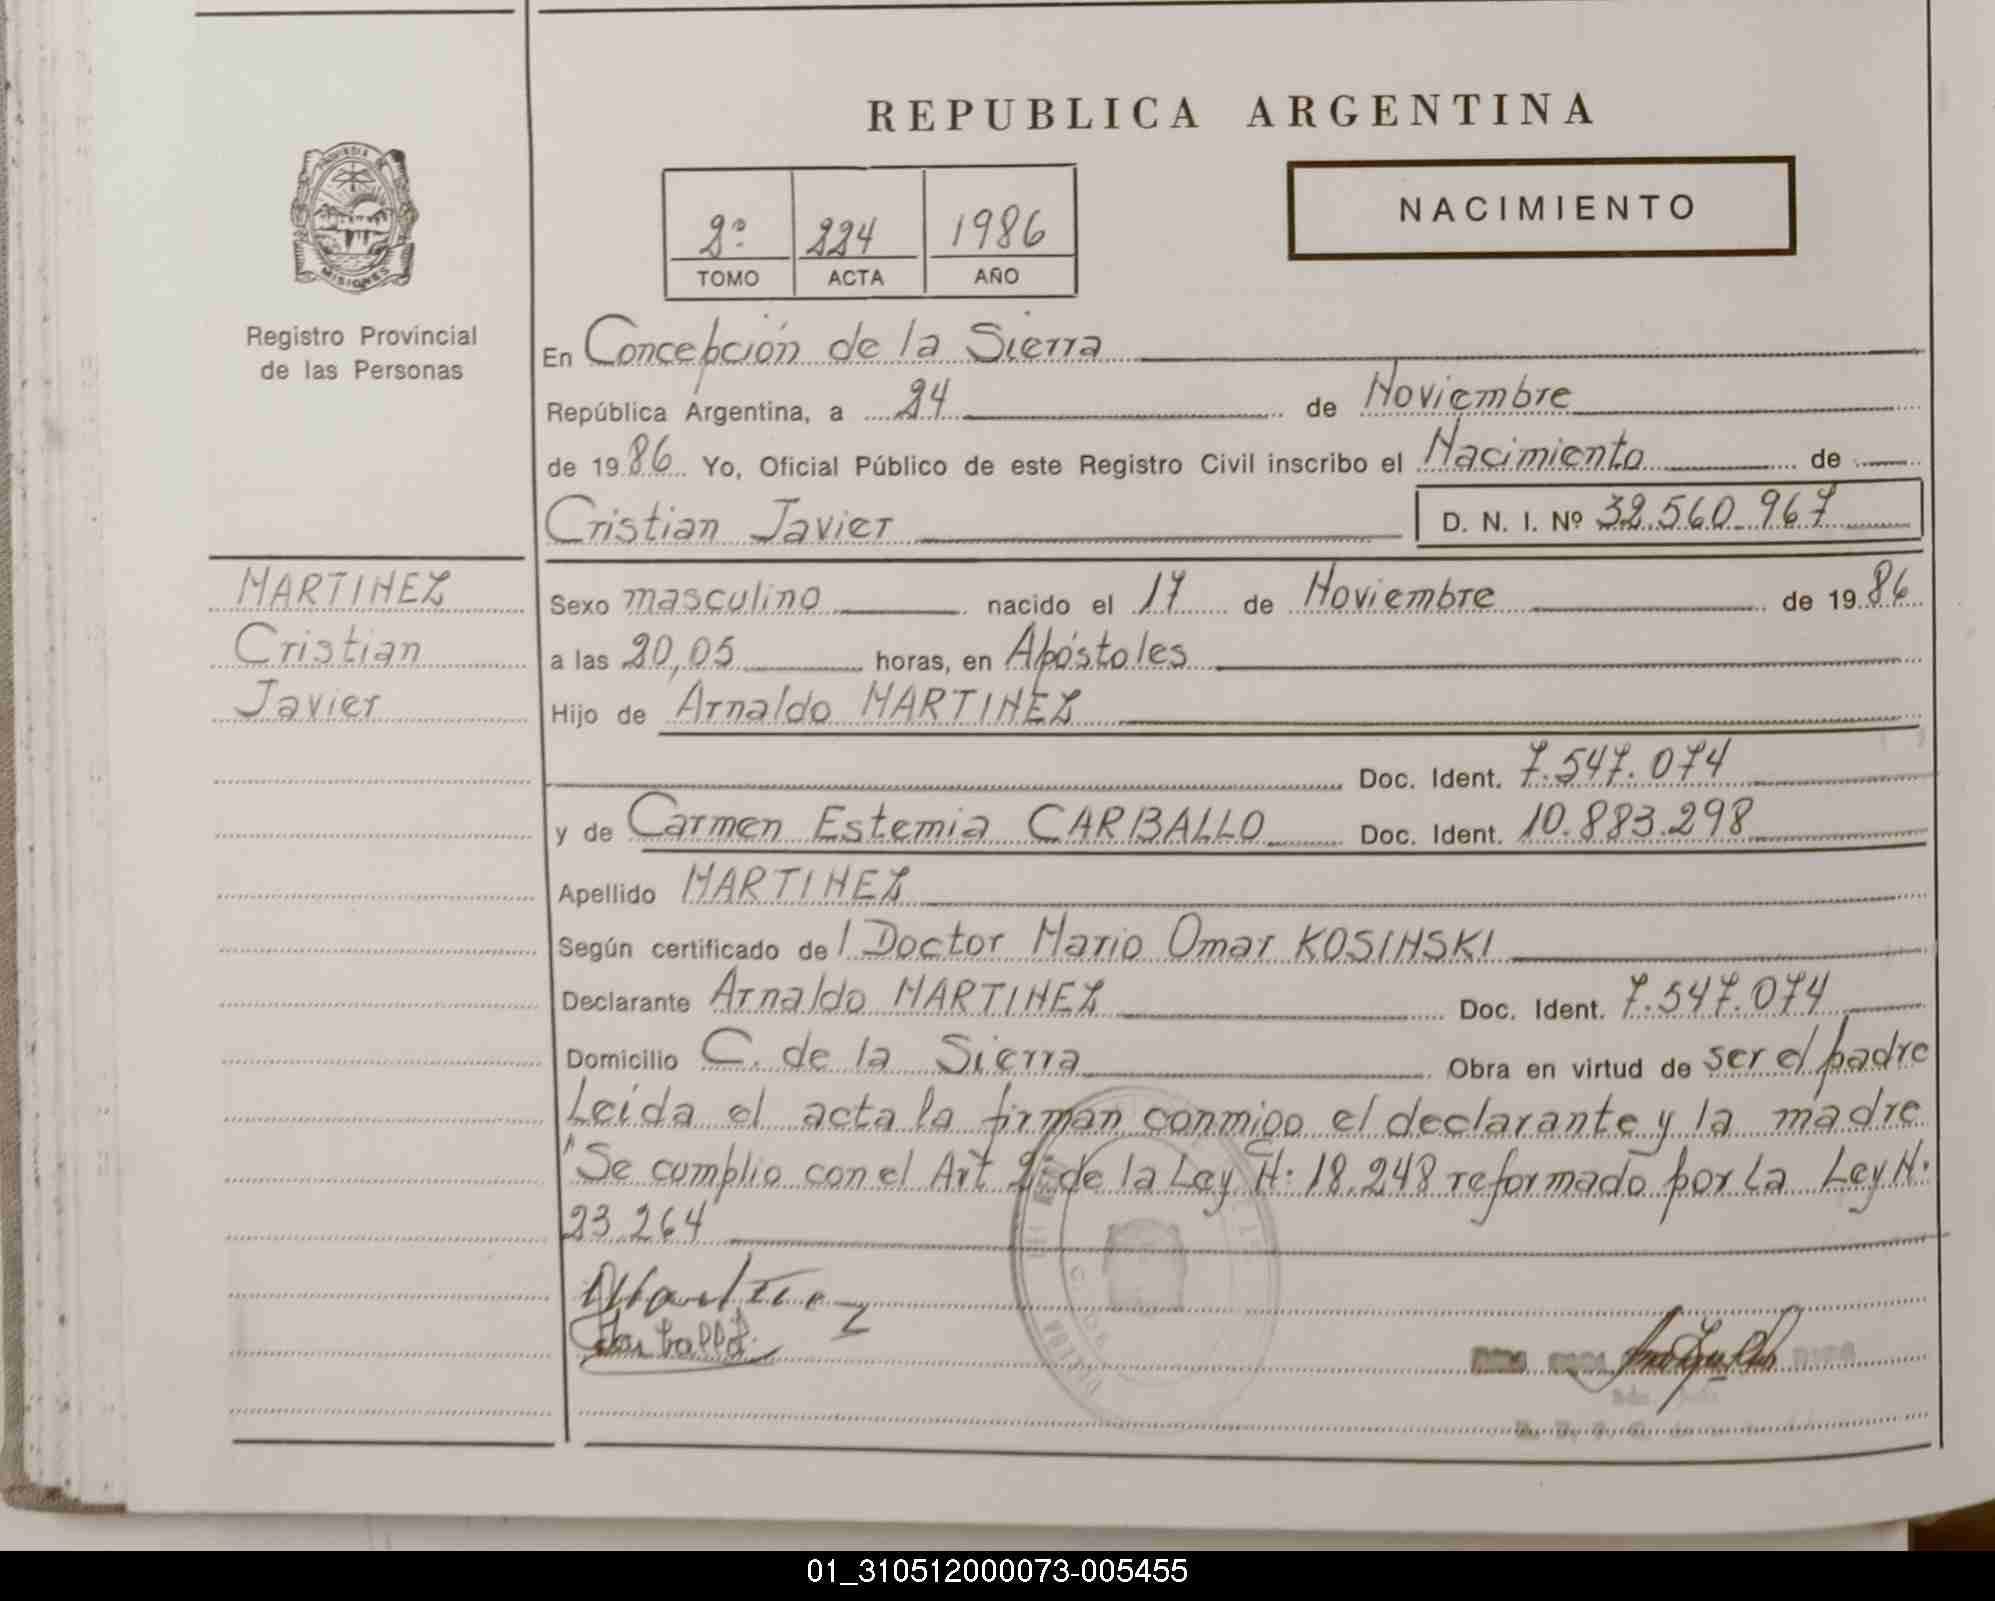 REPUBLICA ARGENTINA
PROVINCIA DE
MISIONES
Registro Provincial
de las Personas
2º 224 1986
TOMO ACTA AÑO
NACIMIENTO
En Concepción de la Sierra
República Argentina, a 24 de Noviembre
de 1986 Yo, Oficial Público de este Registro Civil inscribo el Nacimiento de
Cristian Javier D. N. I. Nº 32.560.967
MARTINEZ
Cristian
Javier
Sexo masculino nacido el 17 de Noviembre de 1986
a las 20,05 horas, en Apóstoles
Hijo de Arnaldo MARTINEZ
Doc. Ident. 7.547.074
y de Carmen Estemia CARBALLO Doc. Ident. 10.883.298
Apellido MARTINEZ
Según certificado del Doctor Mario Omar KOSINSKI
Declarante Arnaldo MARTINEZ Doc. Ident. 7.547.074
Domicilio C. de la Sierra Obra en virtud de ser el padre
Leída el acta la firman conmigo el declarante y la madre
"Se cumplio con el Art 2º de la Ley N: 18.248 reformado por la Ley N:
23.264"
Martinez
Carballo
01_310512000073-005455